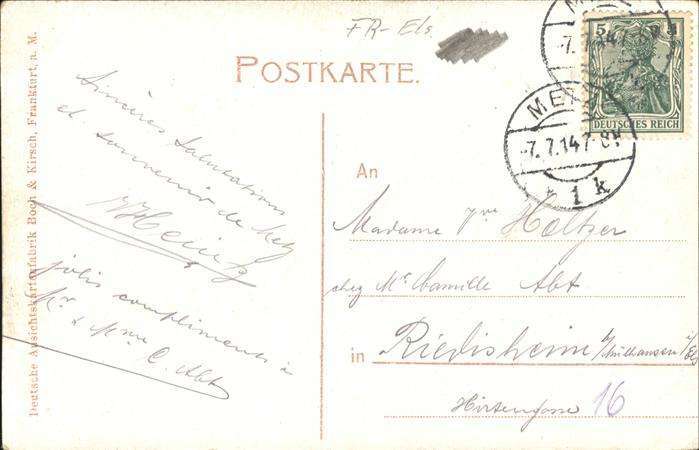 FR-Els.
POSTKARTE.
Deutsche Ansichtskartenfabrik Boch & Kirsch, Frankfurt, a. M.
Sincères Salutations
et souvenir de Metz
Heintz
jolis compliments à
Mr & Mme C. Abt
METZ
7.7.14 7-8
METZ
7.7.14 7-8
1 k
5
DEUTSCHES REICH
An
Madame Vve Holtzer
chez Mr Camille Abt
in Riedisheim b/Mülhausen i/Els
Hirtengasse 16